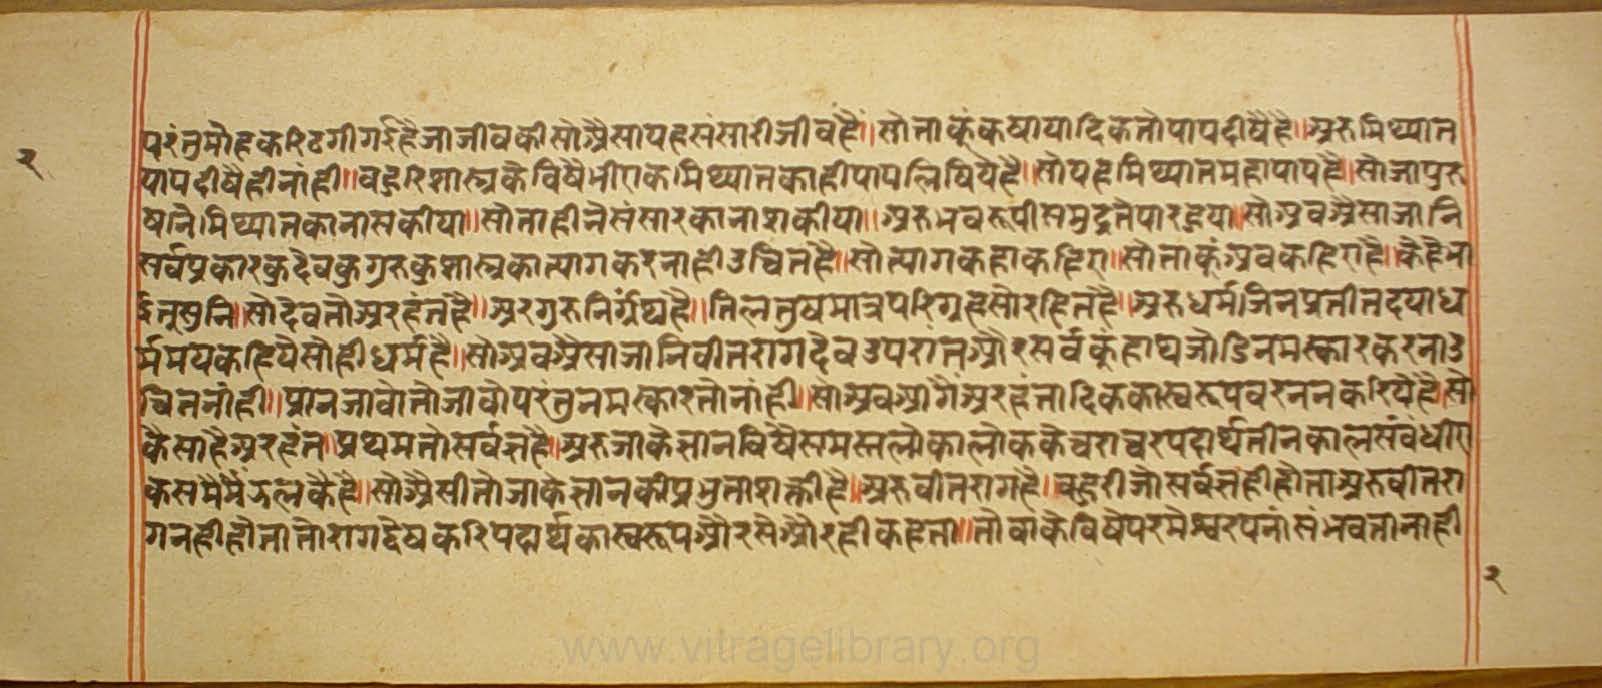 २
परंतुमोहकरिठगीगईहैजाजीवकीसोअैसायहसंसारीजीवहै॥सोताकूंकषायादिकतोपापदीषैहै॥अरुमिथ्यात
पापदीषैहीनांही॥बहुरिशास्त्रकैविषैभीएकमिथ्यातकाहीपापलिषियैहै॥सोयहमिथ्यातमहापापहै॥सोजापुरु
षानैमिथ्यातकानासकीया॥सोताहीनैसंसारकानाशकीया॥अरुभवरूपीसमुद्रतैपारहूया॥सोअवअैसाजानि
सर्वप्रकारकुदेवकुगुरुकुशास्त्रकात्यागकरनाहीउचितहै॥सोत्यागकहाकहिए॥सोताकूंअवकहिएहै॥कैहैभा
ईतूसुनि॥सोदेवतोअरहंतहै॥अरगुरुनिर्ग्रंथहै॥तिलतुषमात्रपरिग्रहसोरहितहै॥अरुधर्मजिनप्रतीतदयाध
र्ममयकहियैसोहीधर्महै॥सोअवअैसाजानिवीतरागदेवउपरांतऔरसर्वकूंहाथजोडिनमस्कारकरनाउ
चितनांही॥प्रानजावोतोजावोपरंतुनमस्कारतोनांही॥सोअवआगैअरहंतादिककास्वरूपवरननकरियैहै॥सो
कैसाहैअरहंत॥प्रथमतोसर्वज्ञहै॥अरुजाकेज्ञानविषैसमस्तलोकालोककेचराचरपदार्थतीनकालसंबंधीए
कसमैमैंझलकैहै॥सोअैसीतोजाकेज्ञानकीप्रभुताशक्तीहै॥अरुवीतरागहै॥बहुरीजोसर्वज्ञहीहोताअरुवीतरा
गनहीहोतातोरागद्वेषकरिपदार्थकास्वरूपऔरसैऔरहीकहता॥तोवाकेविषैपरमेश्वरपनांसंभवतानाही
२
www.vitragelibrary.org